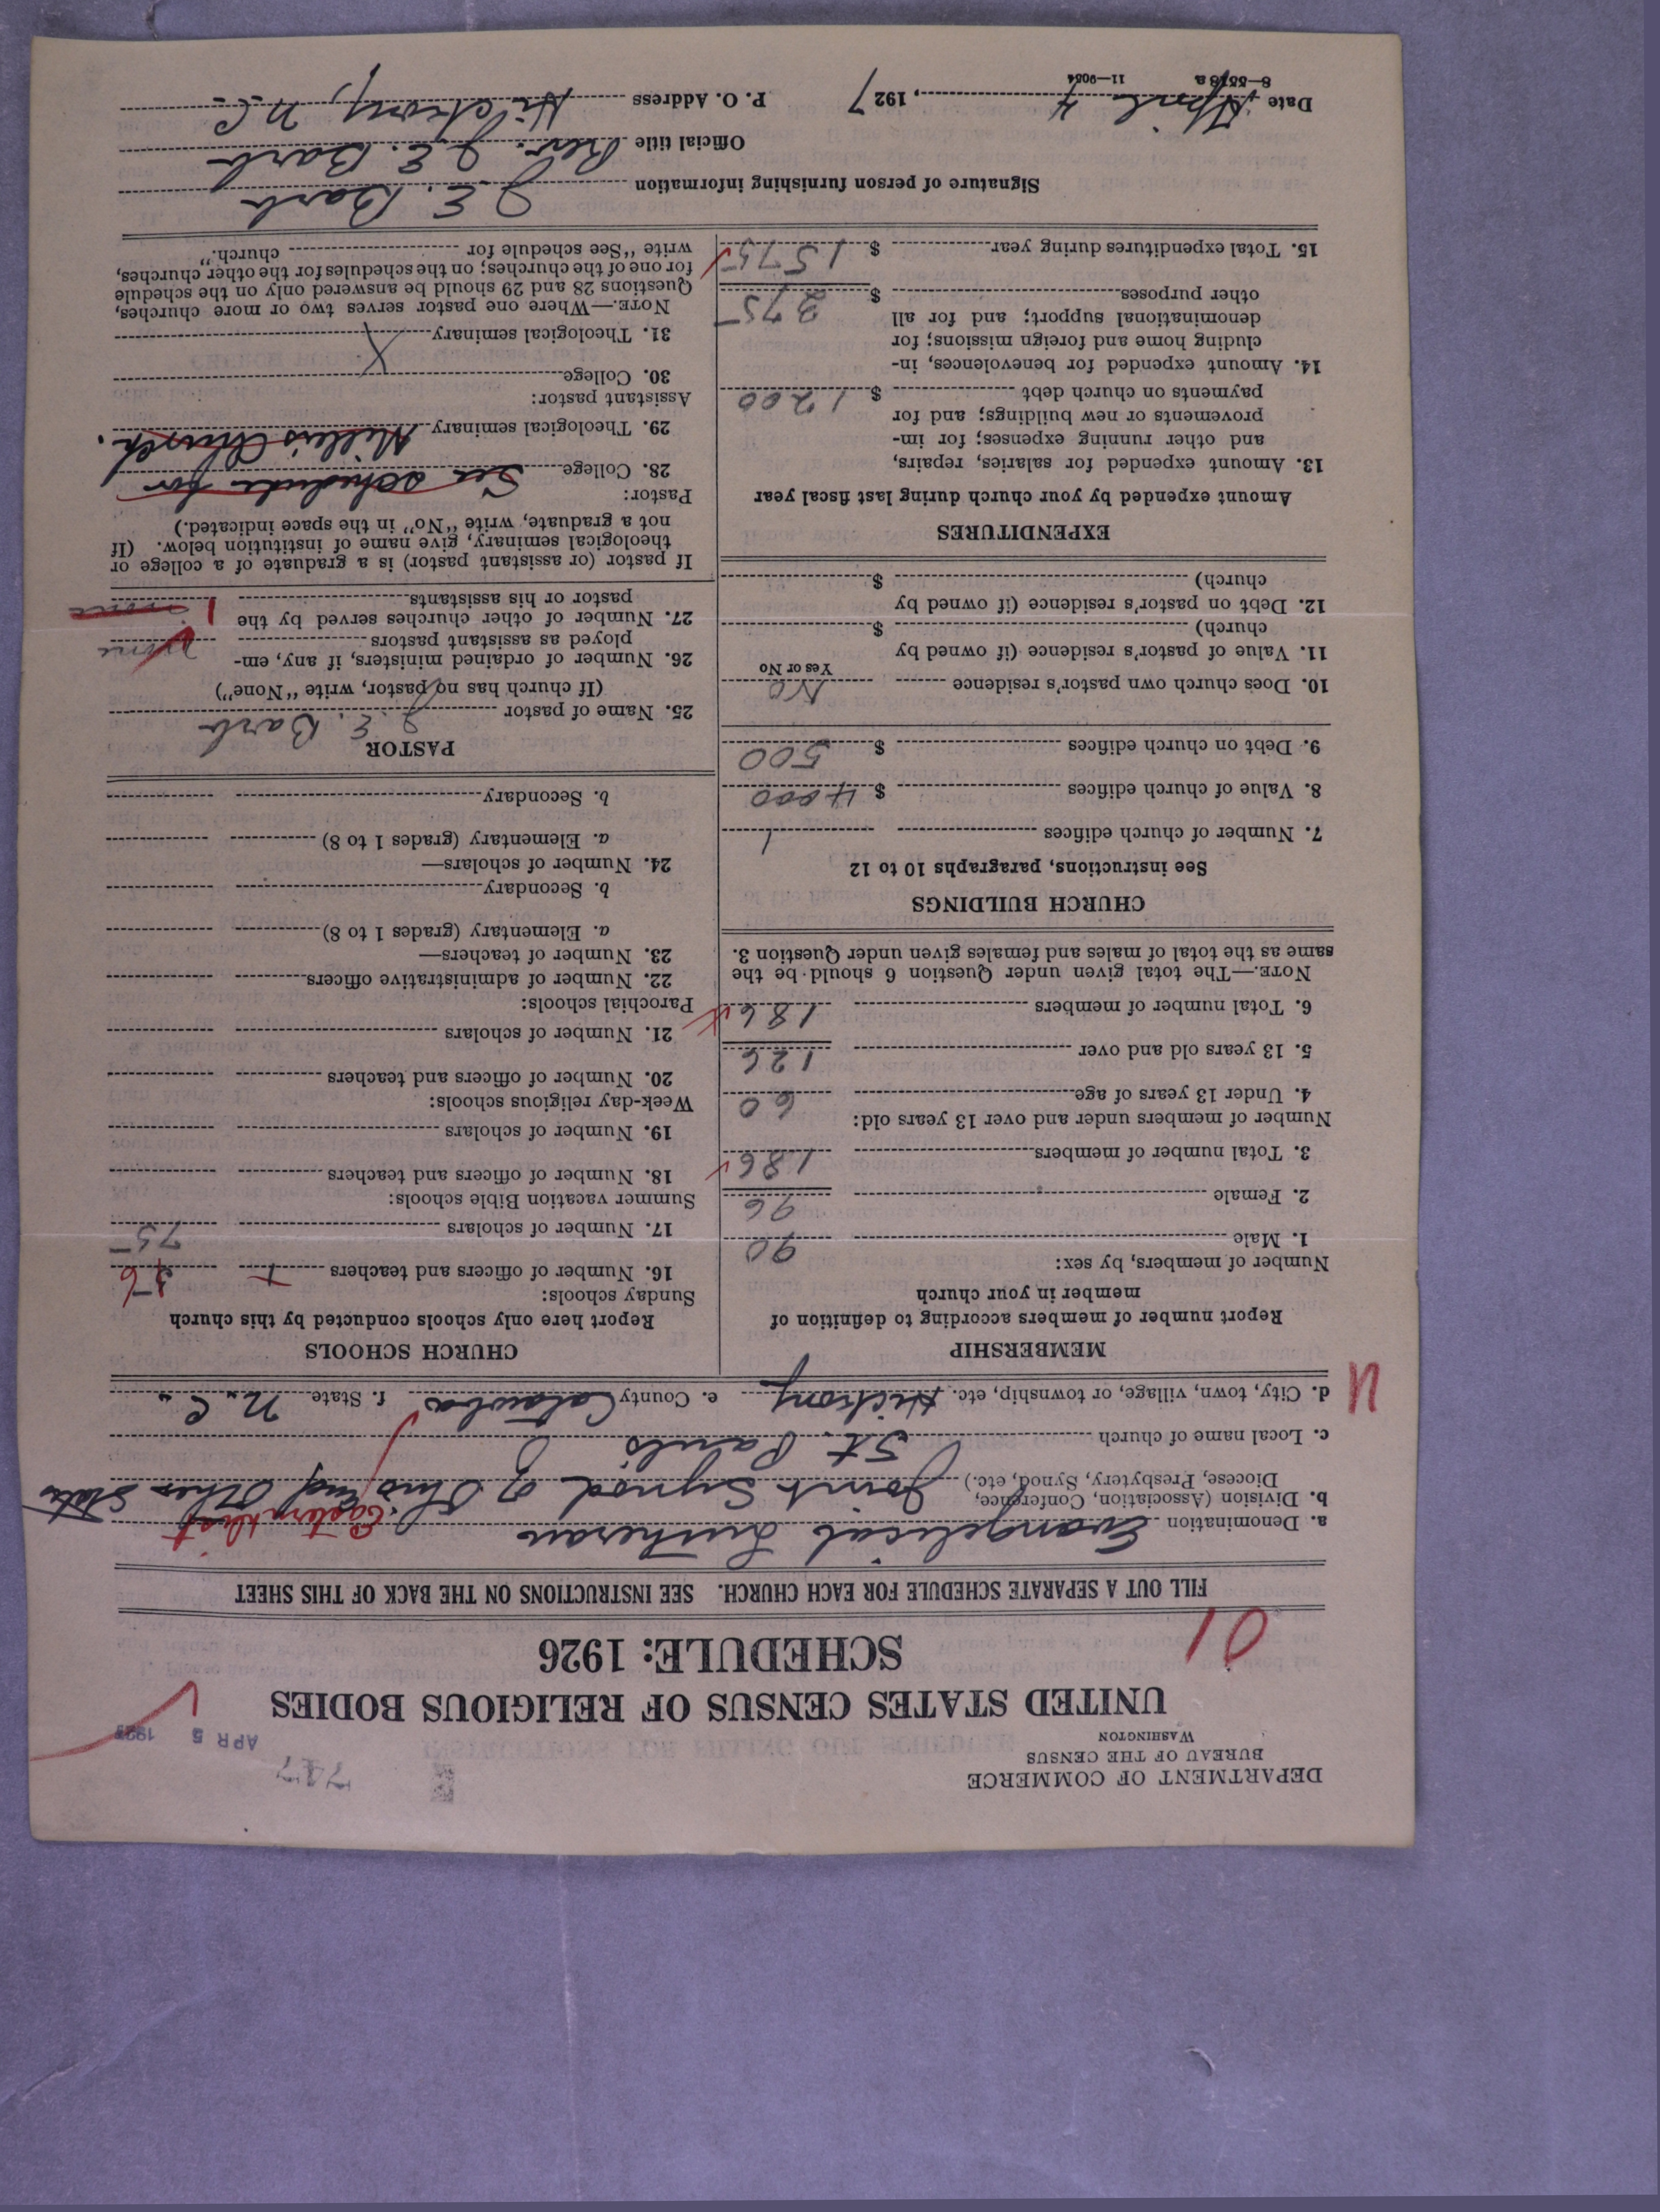 DEPARTMENT OF COMMERCE
BUREAU OF THE CENSUS
WASHINGTON
APR 5 1927
UNITED STATES CENSUS OF RELIGIOUS BODIES
SCHEDULE: 1926
01
FILL OUT A SEPARATE SCHEDULE FOR EACH CHURCH. SEE INSTRUCTIONS ON THE BACK OF THIS SHEET
a. Denomination Evangelical Lutheran
b. Division (Association, Conference, Diocese, Presbytery, Synod, etc.) Joint Synod of Ohio and Other States
c. Local name of church St. Paul's
d. City, town, village, or township, etc. Hickory e. County Catawba f. State N. C.
MEMBERSHIP
Report number of members according to definition of
member in your church
Number of members, by sex:
1. Male 90
2. Female 96
3. Total number of members 186
Number of members under and over 13 years old:
4. Under 13 years of age 60
5. 13 years old and over 126
6. Total number of members 186
NOTE.—The total given under Question 6 should be the
same as the total of males and females given under Question 3.
CHURCH BUILDINGS
See instructions, paragraphs 10 to 12
7. Number of church edifices 1
8. Value of church edifices $ 4000
9. Debt on church edifices $ 500
10. Does church own pastor's residence No
Yes or No
11. Value of pastor's residence (if owned by
church) $
12. Debt on pastor's residence (if owned by
church) $
EXPENDITURES
Amount expended by your church during last fiscal year
13. Amount expended for salaries, repairs,
and other running expenses; for im-
provements or new buildings; and for
payments on church debt $ 1200
14. Amount expended for benevolences, in-
cluding home and foreign missions; for
denominational support; and for all
other purposes $ 375
15. Total expenditures during year $ 1575
CHURCH SCHOOLS
Report here only schools conducted by this church
Sunday schools:
16. Number of officers and teachers
17. Number of scholars 75
Summer vacation Bible schools:
18. Number of officers and teachers
19. Number of scholars
Week-day religious schools:
20. Number of officers and teachers
21. Number of scholars
Parochial schools:
22. Number of administrative officers
23. Number of teachers—
a. Elementary (grades 1 to 8)
b. Secondary
24. Number of scholars—
a. Elementary (grades 1 to 8)
b. Secondary
PASTOR
25. Name of pastor J. E. Barb
(If church has no pastor, write "None")
26. Number of ordained ministers, if any, em-
ployed as assistant pastors none
27. Number of other churches served by the
pastor or his assistants 1 none
If pastor (or assistant pastor) is a graduate of a college or
theological seminary, give name of institution below. (If
not a graduate, write "No" in the space indicated.)
Pastor:
28. College See schedule for
29. Theological seminary Miller's Church.
Assistant pastor:
30. College
31. Theological seminary
NOTE.—Where one pastor serves two or more churches,
Questions 28 and 29 should be answered only on the schedule
for one of the churches; on the schedules for the other churches,
write "See schedule for church."
Signature of person furnishing information J. E. Barb
Official title Rev. J. E. Barb
Date April 4, 1927 P. O. Address Hickory, N. C.
8—5578a 11—9054